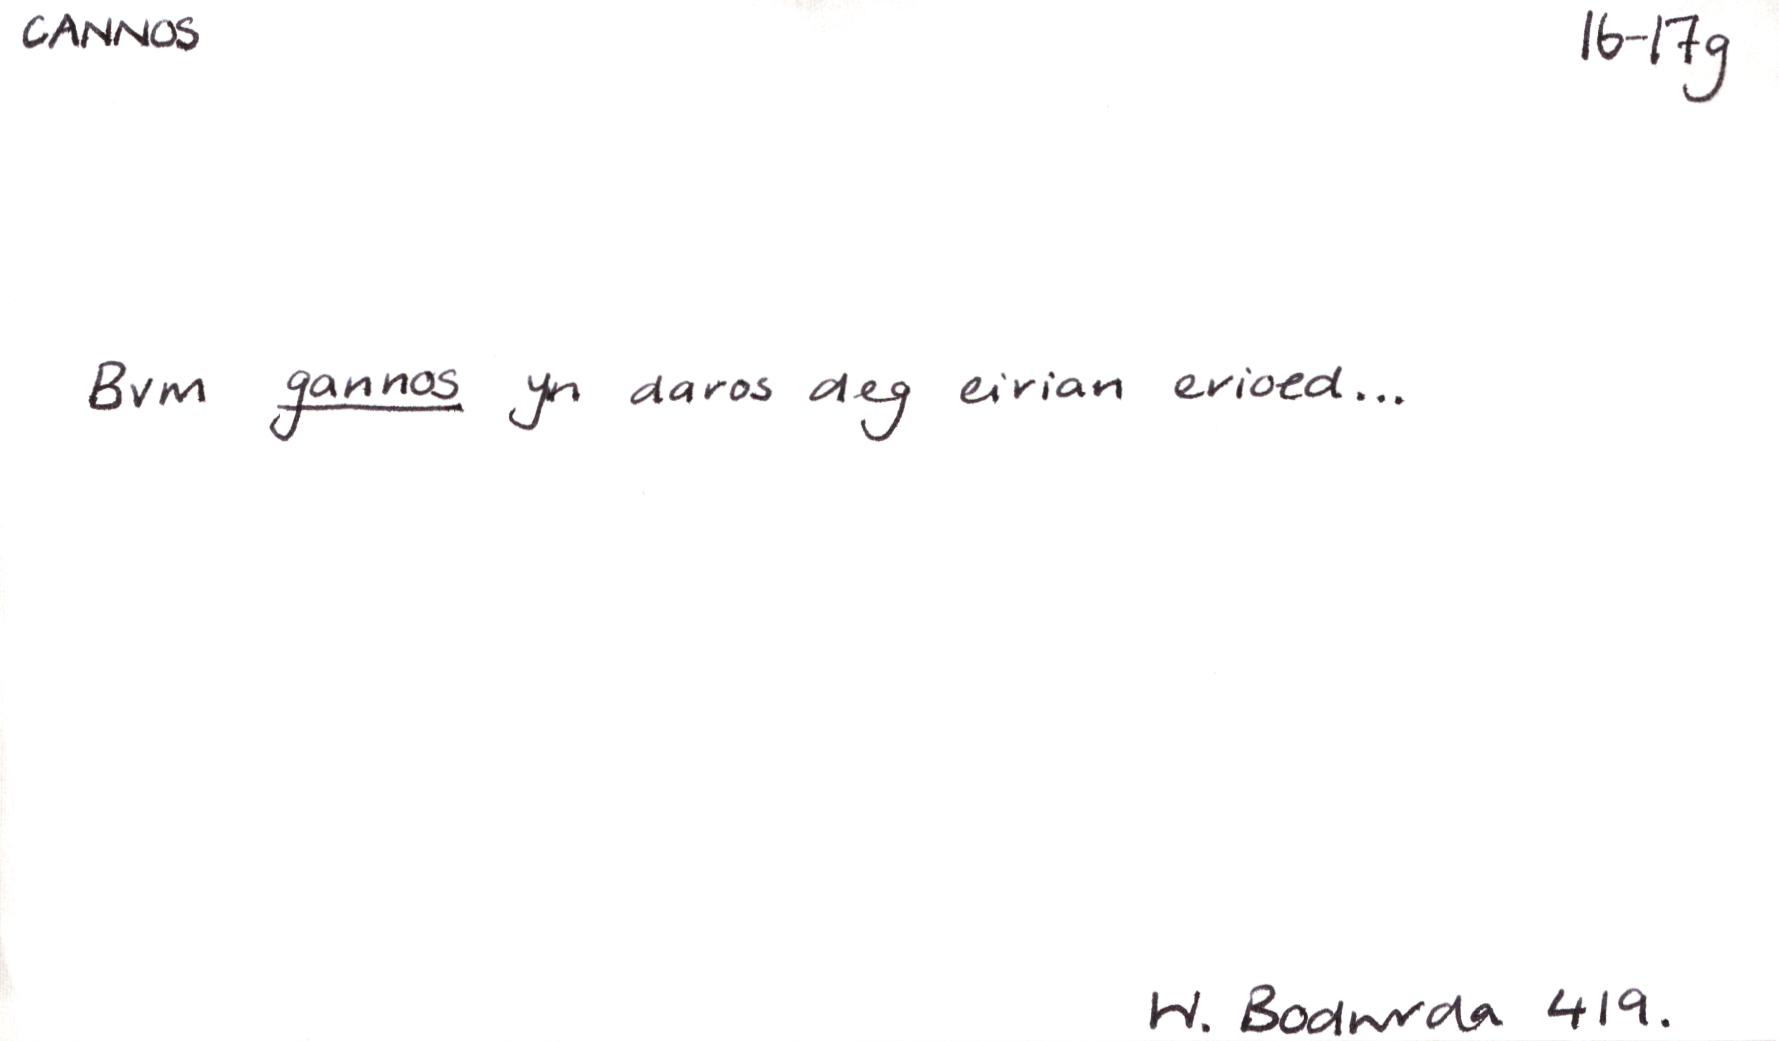 CANNOS 16-17g
Bvm gannos yn daros deg eirian erioed...
W. Bodwrda 419.